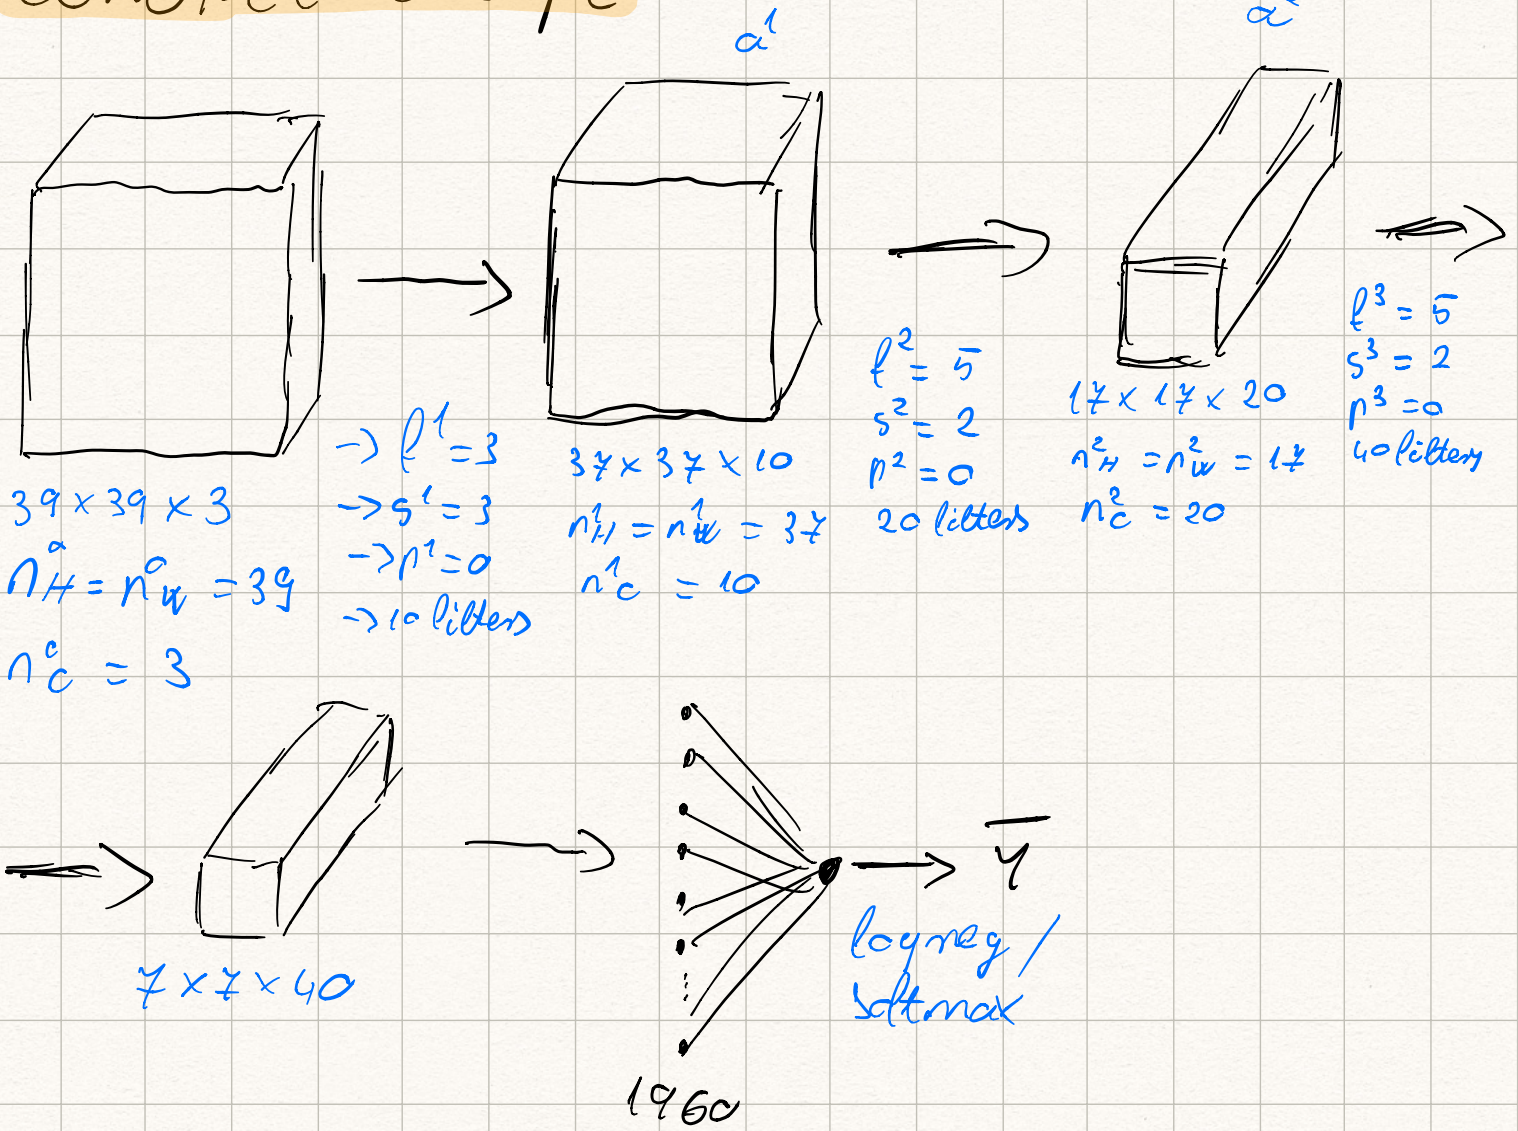 ConvNet
a¹
a²
39 × 39 × 3
n⁰H = n⁰W = 39
n⁰C = 3
-> f¹ = 3
-> s¹ = 3
-> p¹ = 0
-> 10 filters
37 × 37 × 10
n¹H = n¹W = 37
n¹C = 10
f² = 5
s² = 2
p² = 0
20 filters
17 × 17 × 20
n²H = n²W = 17
n²C = 20
f³ = 5
s³ = 2
p³ = 0
40 filters
7 × 7 × 40
1960
Y
logreg /
softmax